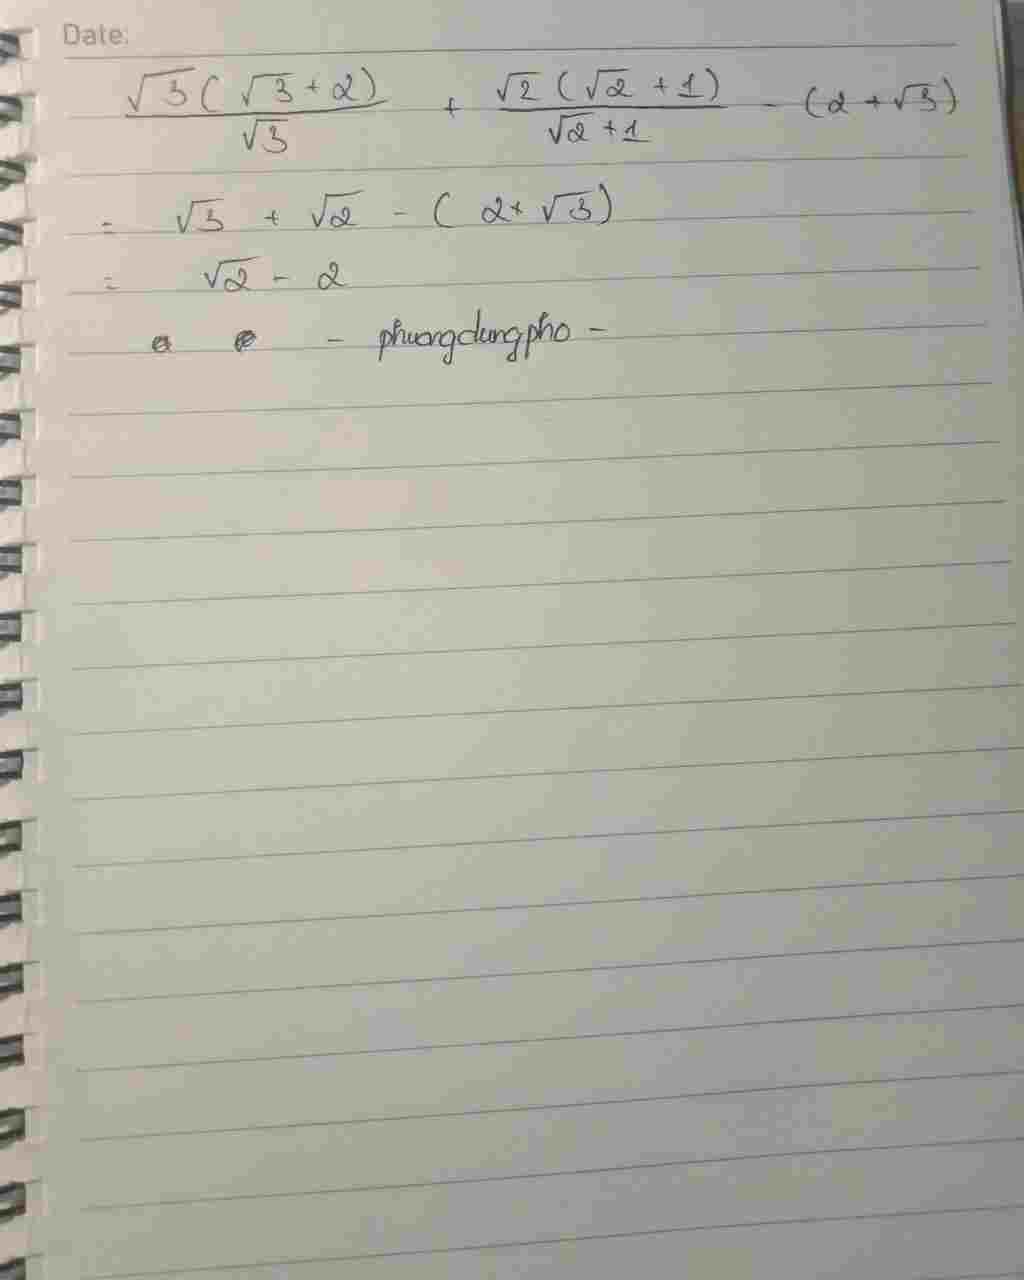 Date:
√3(√3+2)/√3 + √2(√2+1)/√2+1 - (2+√3)
= √3 + √2 - (2+√3)
= √2 - 2
- phuongdungpho -